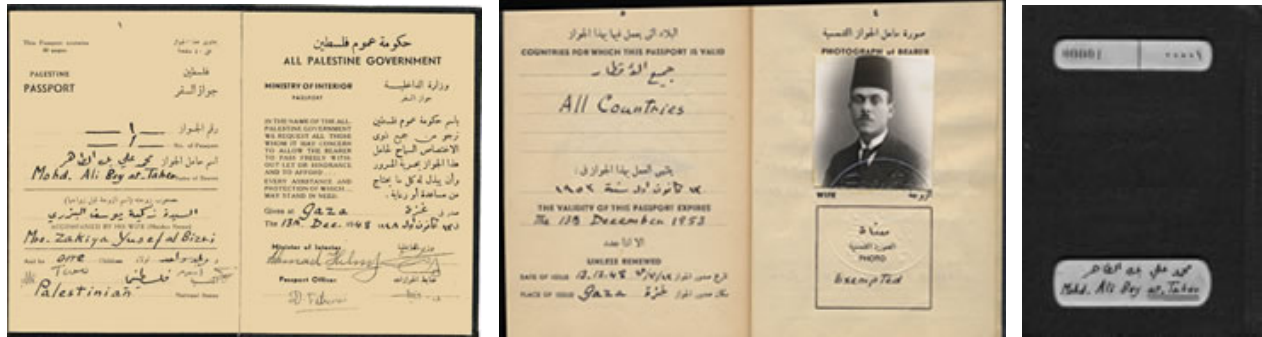 ١
This Passport contains
يحتوي هذا الجواز
PALESTINE
PASSPORT
فلسطين
جواز السفر
رقم الجواز
No. of Passport
اسم حامل الجواز محمد علي بك الطاهر
Mohd. Ali Bey at. Taher
السيدة زكية يوسف البزري
ACCOMPANIED BY HIS WIFE (Maiden Name)
Mrs. Zakiya Yusef al Bizri
and by one Children
Two
فلسطيني
Palestinian
National Status
حكومة عموم فلسطين
ALL PALESTINE GOVERNMENT
MINISTRY OF INTERIOR
وزارة الداخلية
PASSPORT
جواز السفر
IN THE NAME OF THE ALL
PALESTINE GOVERNMENT
WE REQUEST ALL THOSE
WHOM IT MAY CONCERN
TO ALLOW THE BEARER
TO PASS FREELY WITH-
OUT LET OR HINDRANCE
AND TO AFFORD
EVERY ASSISTANCE AND
PROTECTION OF WHICH
MAY STAND IN NEED.
باسم حكومة عموم فلسطين
نرجو من جميع ذوى
الاختصاص السماح لحامل
هذا الجواز بحرية المرور
وأن يبذل له كل ما يحتاج
من مساعدة أو رعاية.
Given at Gaza غزة صدر في
The 13th. Dec. 1948
Minister of Interior
وزير الداخلية
Passport Officer
ضابط الجوازات
٥
البلاد التي يعمل فيها بهذا الجواز
COUNTRIES FOR WHICH THIS PASSPORT IS VALID
جميع الأقطار
All Countries
ينتهي العمل بهذا الجواز في:
١٣ كانون أول سنة ١٩٥٣
THE VALIDITY OF THIS PASSPORT EXPIRES
The 13th December 1953
الا اذا جدد
UNLESS RENEWED
DATE OF ISSUE 13.12.48 تاريخ صدور الجواز
PLACE OF ISSUE Gaza غزة مكان صدور الجواز
٤
صورة حامل الجواز الشمسية
PHOTOGRAPH of BEARER
WIFE
الزوجة
معفاة
الصورة الشمسية
PHOTO
Exempted
محمد علي بك الطاهر
Mohd. Ali Bey at. Taher